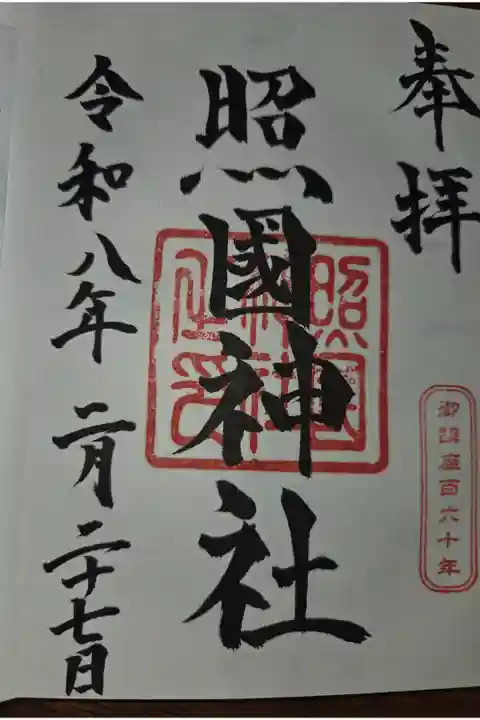 奉拝
御鎮座百六十年
照國神社
令和八年二月二十七日